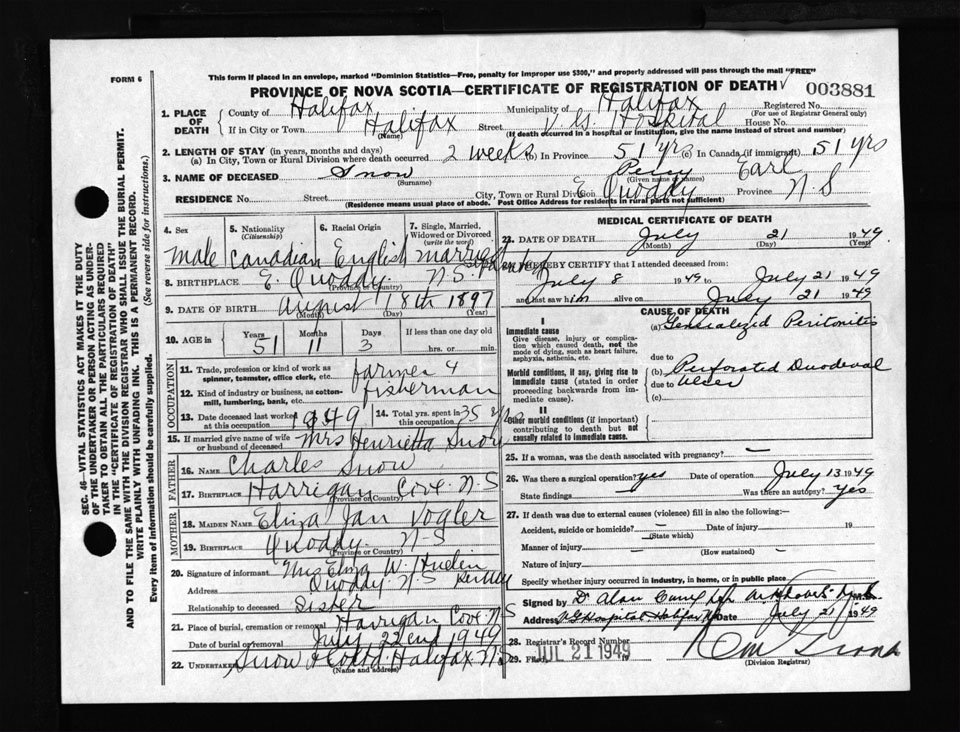 FORM 6
This form if placed in an envelope, marked "Dominion Statistics—Free, penalty for improper use $300," and properly addressed will pass through the mail "FREE"
PROVINCE OF NOVA SCOTIA—CERTIFICATE OF REGISTRATION OF DEATH
003881
1. PLACE OF DEATH
County of Halifax Municipality of Halifax Registered No.
(For use of Registrar General only)
If in City or Town Halifax Street V. G. Hospital House No.
(Name) (If death occurred in a hospital or institution, give the name instead of street and number)
2. LENGTH OF STAY (in years, months and days)
(a) In City, Town or Rural Division where death occurred 2 weeks (b) In Province 51 yrs (c) In Canada (if immigrant) 51 yrs
3. NAME OF DECEASED Snow Percy Earl
(Surname) (Given name or names)
RESIDENCE No. Street City, Town or Rural Division E Quoddy Province N S
(Residence means usual place of abode. Post Office Address for residents in rural parts not sufficient)
4. Sex Male
5. Nationality (Citizenship) Canadian
6. Racial Origin English
7. Single, Married, Widowed or Divorced (write the word) married
8. BIRTHPLACE E. Quoddy. N-S.
(Province or Country)
9. DATE OF BIRTH August 18th 1897
(Month) (Day) (Year)
10. AGE in Years 51 Months 11 Days 3 If less than one day old
hrs. or min.
OCCUPATION
11. Trade, profession or kind of work as spinner, teamster, office clerk, etc. farmer &
12. Kind of industry or business, as cotton-mill, lumbering, bank, etc. fisherman
13. Date deceased last worked at this occupation 1949 14. Total yrs. spent in this occupation 35 yrs
15. If married give name of wife or husband of deceased Mrs Henrietta Snow
FATHER
16. NAME Charles Snow
17. BIRTHPLACE Harrigan Cove N-S
(Province or Country)
MOTHER
18. MAIDEN NAME Eliza Jan Vogler
19. BIRTHPLACE Quoddy. N-S
(Province or Country)
20. Signature of informant Mrs Elma W.
Address Quoddy. N-S
Relationship to deceased Sister
21. Place of burial, cremation or removal Harrigan Cove N-S
Date of burial or removal July 22nd 1949
22. Undertaker Snow & Co Ltd. Halifax N-S
(Name and address)
MEDICAL CERTIFICATE OF DEATH
23. DATE OF DEATH July 21 1949
(Month) (Day) (Year)
24. I HEREBY CERTIFY that I attended deceased from
July 8 1949 to July 21 1949
and last saw him alive on July 21 1949
CAUSE OF DEATH
I
Immediate cause
Give disease, injury or complication which caused death, not the mode of dying, such as heart failure, asphyxia, asthenia, etc.
(a) Generalized Peritonitis
due to
Morbid conditions, if any, giving rise to immediate cause (stated in order proceeding backwards from immediate cause).
(b) Perforated Duodenal
due to Ulcer
(c)
II
Other morbid conditions (if important) contributing to death but not causally related to immediate cause.
25. If a woman, was the death associated with pregnancy? —
26. Was there a surgical operation? yes Date of operation July 13 1949
State findings Was there an autopsy? Yes
27. If death was due to external causes (violence) fill in also the following:—
Accident, suicide or homicide? — Date of injury 19
(State which)
Manner of injury — (How sustained) —
Nature of injury
Specify whether injury occurred in industry, in home, or in public place
Signed by Dr Alan M.D.
Address V G Hospital Halifax NS Date July 21 1949
28. Registrar's Record Number
29. Filed JUL 21 1949
(Division Registrar)
SEC. 46—VITAL STATISTICS ACT MAKES IT THE DUTY OF THE UNDERTAKER OR PERSON ACTING AS UNDERTAKER TO OBTAIN ALL THE PARTICULARS REQUIRED IN THE "CERTIFICATE OF REGISTRATION OF DEATH" AND TO FILE THE SAME WITH THE DIVISION REGISTRAR WHO SHALL ISSUE THE BURIAL PERMIT.
WRITE PLAINLY WITH UNFADING INK. THIS IS A PERMANENT RECORD.
Every item of information should be carefully supplied. (See reverse side for instructions.)